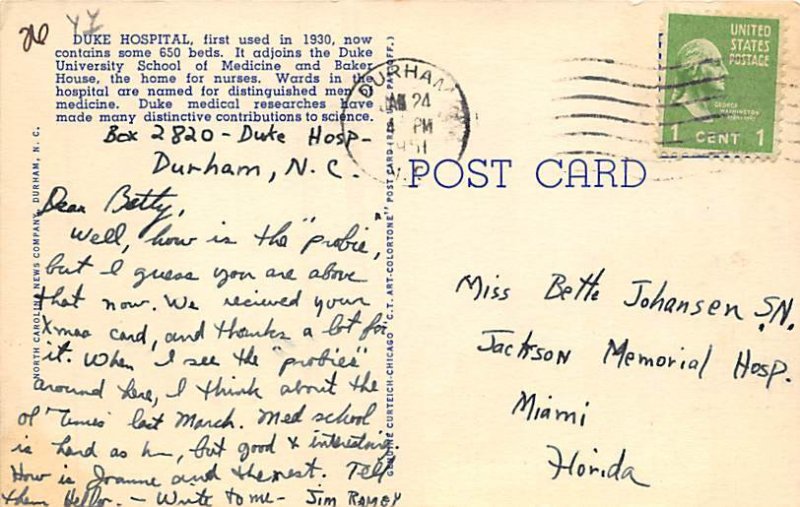 DUKE HOSPITAL, first used in 1930, now
contains some 650 beds. It adjoins the Duke
University School of Medicine and Baker
House, the home for nurses. Wards in the
hospital are named for distinguished men
medicine. Duke medical researches have
made many distinctive contributions to science.
Box 2820 - Duke Hosp-
Durham, N.C.
Dear Betty,
Well, how is the "probie,
but I guess you are above
that now. We recieved your
Xmas card, and thanks a lot for
it. When I see the "probies"
around here, I think about the
ol' times last March. Med school
is hard as h—, but good & interesting.
How is Joanne and the rest. Tell
them Hello. - Write to me - Jim Ramey
NORTH CAROLINA NEWS COMPANY, DURHAM, N. C.
GENUINE CURTEICH-CHICAGO "C.T. ART-COLORTONE" POST CARD (REG. U.S. PAT. OFF.)
DURHAM
JAN 24
PM
1951
N.C.
UNITED
STATES
POSTAGE
GEORGE
WASHINGTON
1 CENT 1
POST CARD
Miss Bette Johansen S.N.
Jackson Memorial Hosp.
Miami
Florida